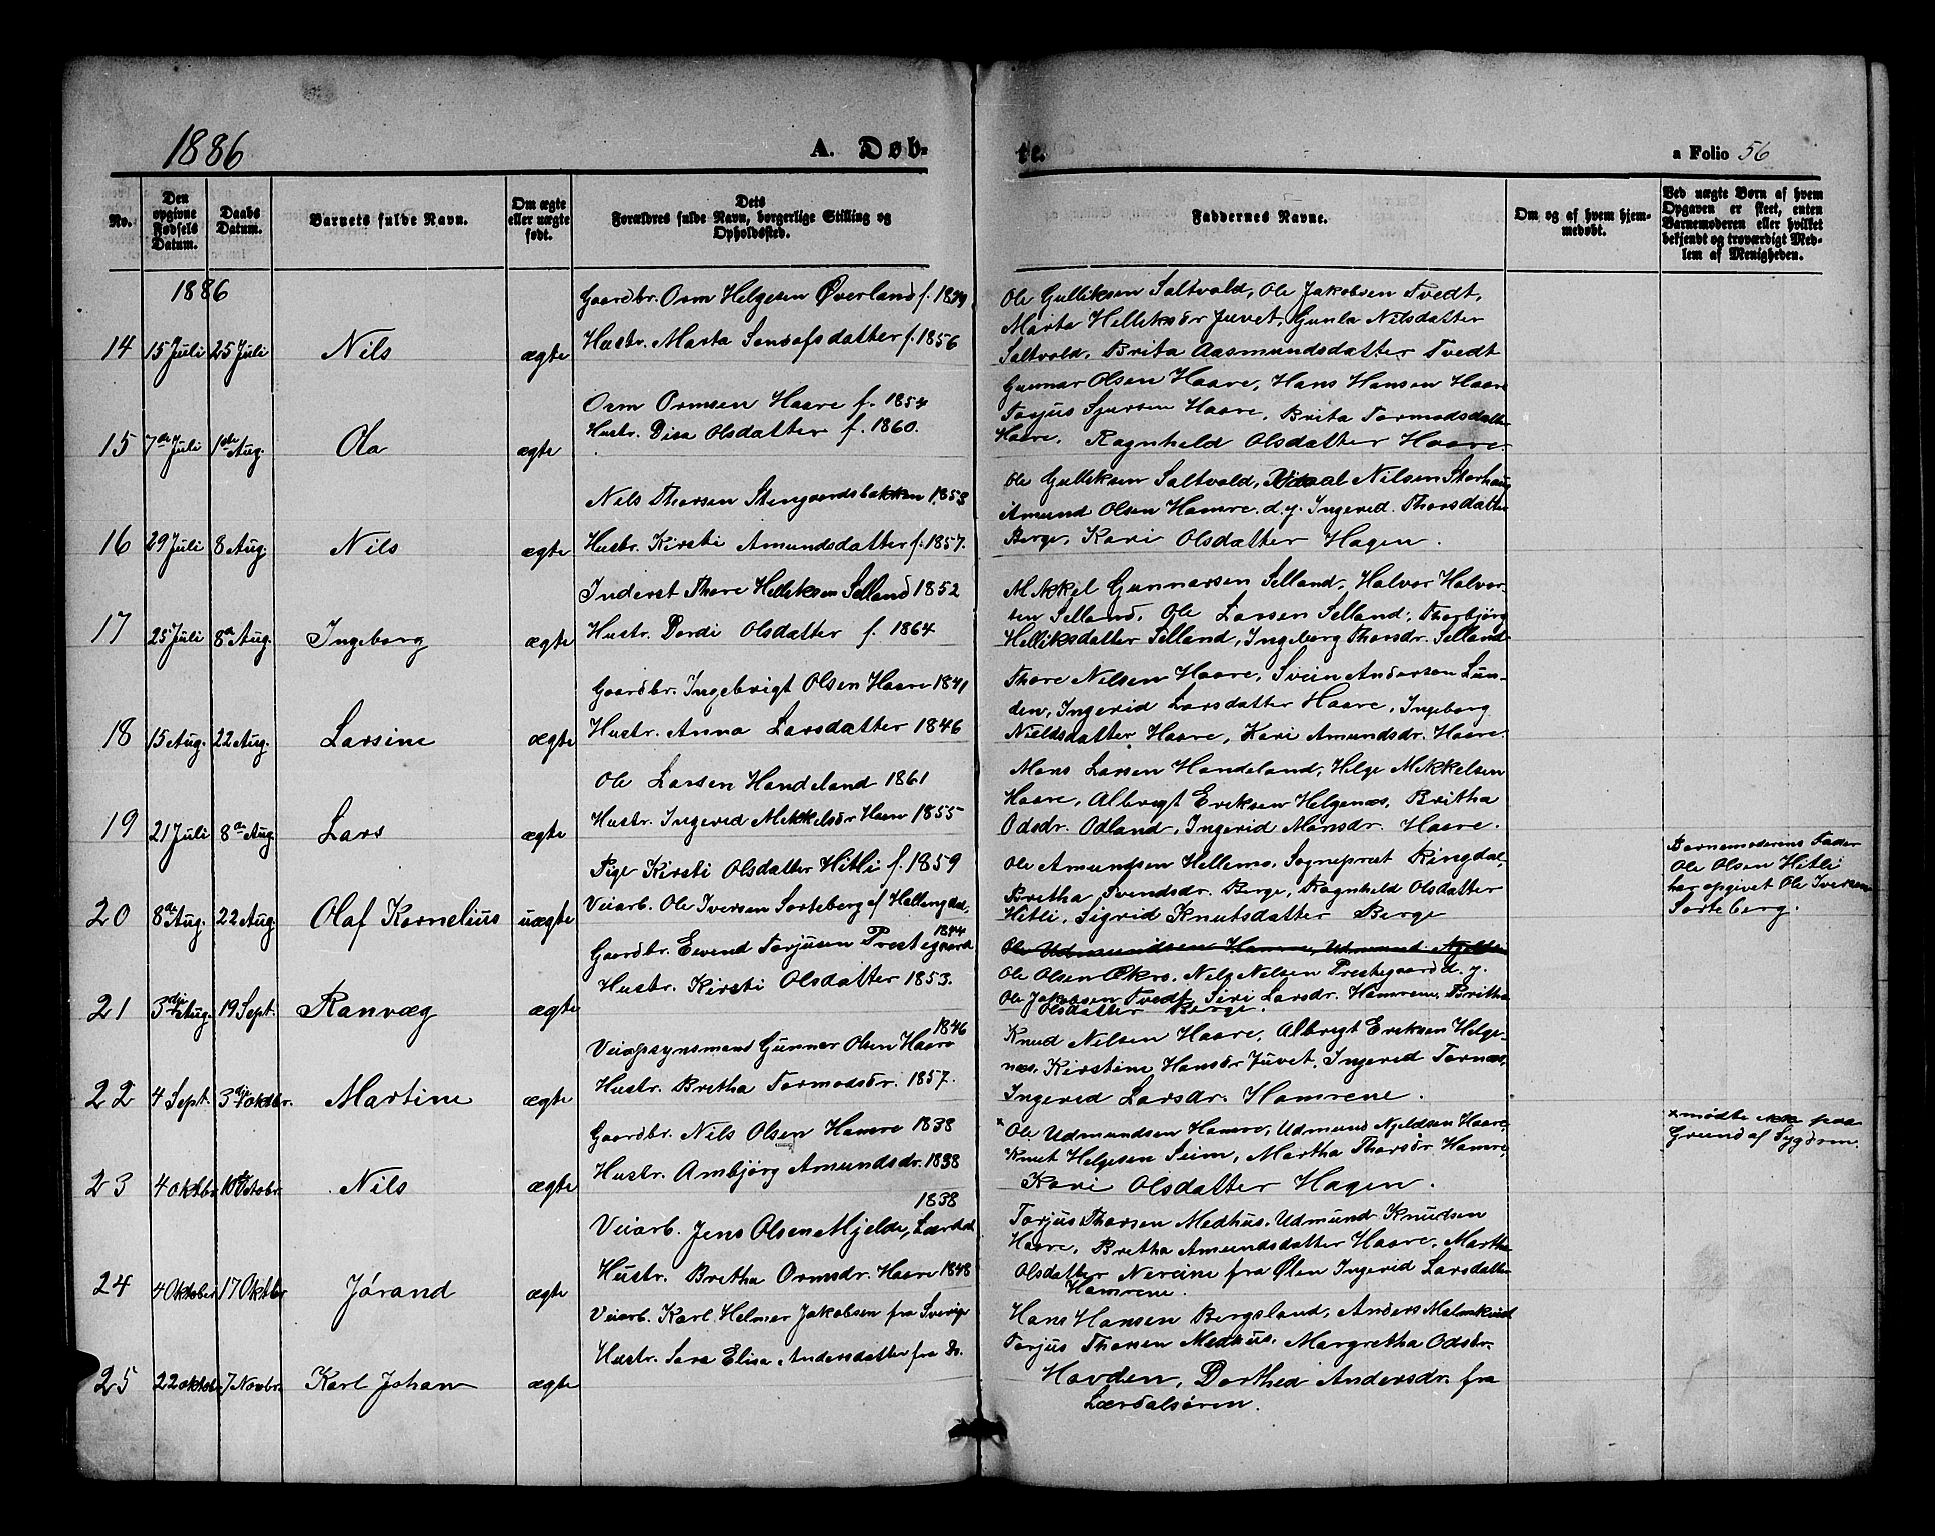 1886
A. Døb-
te.
a Folio 56
No.
Den opgivne Fødsels Datum.
Daabs Datum.
Barnets fulde Navn.
Om ægte eller uægte født.
Dets Forældres fulde Navn, borgerlige Stilling og Opholdssted.
Faddernes Navne.
Om og af hvem hjemmedøbt.
Ved uægte Børn af hvem Opgaven er skeet, enten Barnemoderen eller hvilket bekjendt og troværdigt Medlem af Menigheden.
1886
14 15 Juli 25 Juli Nils ægte
Gaardbr. Orm Helgesen Øverland f. 1849
Hustr. Marta Sendofsdatter f. 1856
Ole Gulliksen Saltvold, Ole Jakobsen Tvedt,
Marta Helliksdr Juvet, Gunla Nilsdatter
Saltvold, Brita Aasmundsdatter Tvedt
15 7de Juli 1ste Aug. Ola ægte
Orm Ormsen Haare f. 1854
Hustr. Disa Olsdatter f. 1860.
Gunnar Olsen Haare, Hans Hansen Haare
Torjus Sjursen Haare, Brita Tormodsdatter
Haare, Ragnheld Olsdatter Haare.
16 29 Juli 8 Aug. Nils ægte
Nils Thorsen Stengaardsbakken 1853
Hustr. Kirsti Amundsdatter f. 1857.
Ole Gulliksen Saltvold, Nilsen Storhaug
Amund Olsen Hamre d.y. Ingerid Thorsdatter
Berge, Kari Olsdatter Hagen.
17 25 Juli 8de Aug. Ingeborg ægte
Inderst Thore Helliksen Selland 1852
Hustr. Dordi Olsdatter f. 1864
Mikkel Gunnarsen Selland, Halvor Halvor-
sen Selland, Ole Larsen Selland, Thorbjørg
Helliksdatter Selland, Ingeborg Thorsdr. Selland
18 15 Aug. 22 Aug. Larsine ægte
Gaardbr. Ingebrigt Olsen Haare 1841
Hustr. Anna Larsdatter 1846
Thore Nilsen Haare, Svein Andersen Lun-
den, Ingerid Larsdatter Haare, Ingeborg
Nieldsdatter Haare, Kari Amundsdr. Haare.
19 21 Juli 8de Aug. Lars ægte
Ole Larsen Handeland 1861
Hustr. Ingerid Mikkelsdr Haere 1855
Mons Larsen Handeland, Helge Mikkelsen
Haare, Albrigt Eriksen Helgenæs, Britha
Odsdr. Odland, Ingerid Monsdr. Haare.
20 8de Aug. 22 Aug. Olaf Kornelius uægte
Pige Kirsti Olsdatter Hitli f. 1859
Veiarb. Ole Iversen Sorteberg af Hellingdal,
Ole Amundsen Hellemo, Sogneprest Ringdal,
Bretha Svendsdr. Berge, Ragnheld Olsdatter
Hitli, Sigrid Knutsdatter Berge
Barnemoderens Fader
Ole Olsen Hitli
har opgivet Ole Iversen
Sorteberg.
21 3die Aug. 19 Sept. Ranvæg ægte
1844
Gaardbr. Eivend Torjusen Prestegaard
Hustr. Kirsti Olsdatter 1853.
Ole Udmundsen Hamre, Udmund Njeldsen
Ole Olsen Ekro, Nels Nelsen Prestegaard d.y.
Ole Jakobsen Tvedt, Siri Larsdr. Hamrene, Britha
Olsdatter Berge.
22 4 Sept. 3die Oktbr. Martine ægte
1846
Veiopsynsmand Gunnar Olsen Haare
Hustr. Bretha Tormodsdr. 1857.
Knud Nelsen Haare, Albrigt Eriksen Helge-
næs, Kirstine Hansdr Juvet, Ingerid Tornæs,
Ingerid Larsdr. Hamrene.
23 4 Oktbr. 10de Octobr. Nils ægte
Gaardbr. Nils Olsen Hamre 1838
Hustr. Ambjørg Amundsdr. 1838
× Ole Udmundsen Hamre, Udmund Njeldsen Haare,
Knut Helgesen Seim, Martha Thorsdr Hamre,
Kari Olsdatter Hagen.
× mødte ikke paa
Grund af Sygdom.
24 4 Oktober 17 Oktbr Jørand ægte
1838
Veiarb. Jens Olsen Mjelde, Lærdal
Hustr. Bretha Ormsdr. Haare 1848
Torjus Thorsen Medhus, Udmund Knudsen
Haare, Bretha Amundsdatter Haare, Martha
Olsdatter Nercine fra Ølen Ingerid Larsdatter
Hamrene.
25 22 Oktob. 7 Novbr. Karl Johan ægte
Veiarb. Karl Helmer Jakobsen fra Sverige
Hustr. Sara Elisa Andersdatter fra Do.
Hans Hansen Bergsland, Anders Malmkvist
Torjus Thorsen Medhus, Margretha Odsdr.
Hovden, Dorthea Andersdr. fra
Lærdalsøren.